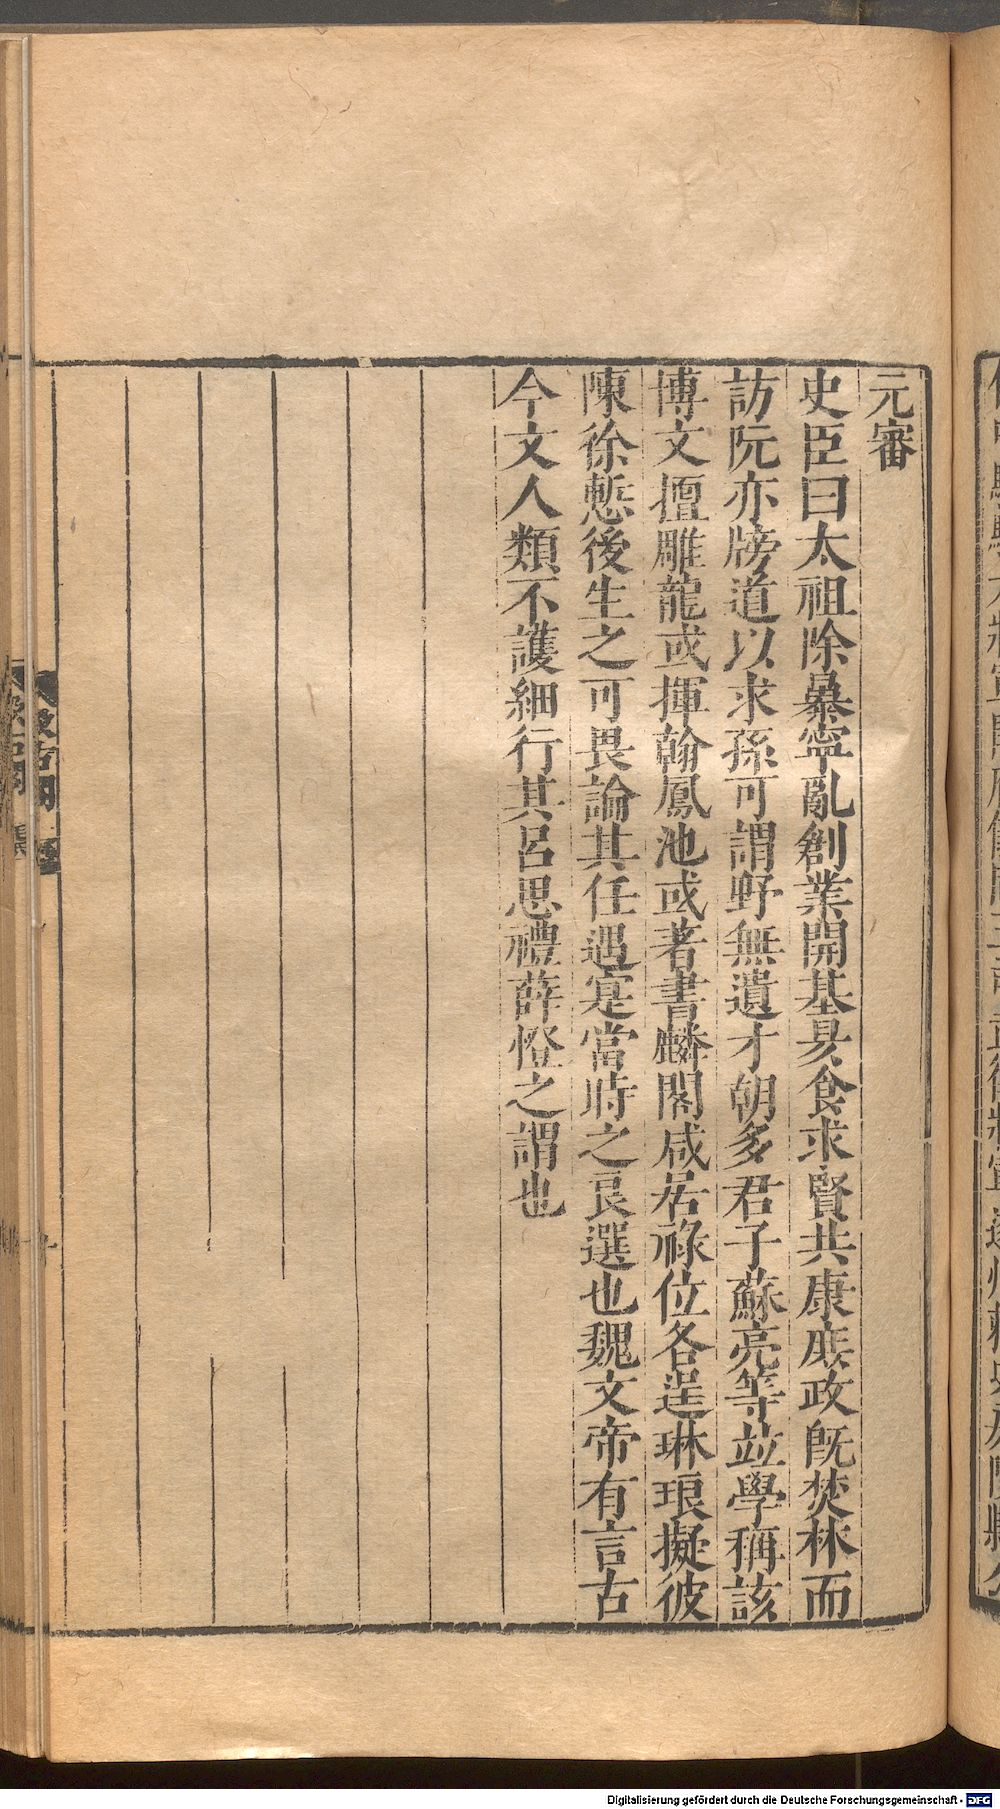 元審
史臣曰太祖除暴寧亂創業開基昃食求賢共康庶政既焚林而
訪阮亦牓道以求孫可謂野無遺才朝多君子蘇亮等竝學稱該
博文擅雕龍或揮翰鳳池或著書麟閣咸居祿位各逞琳琅擬彼
陳徐慙後生之可畏論其任遇寔當時之良選也魏文帝有言古
今文人類不護細行其呂思禮薛憕之謂也
汲古閣
Digitalisierung gefördert durch die Deutsche Forschungsgemeinschaft - DFG